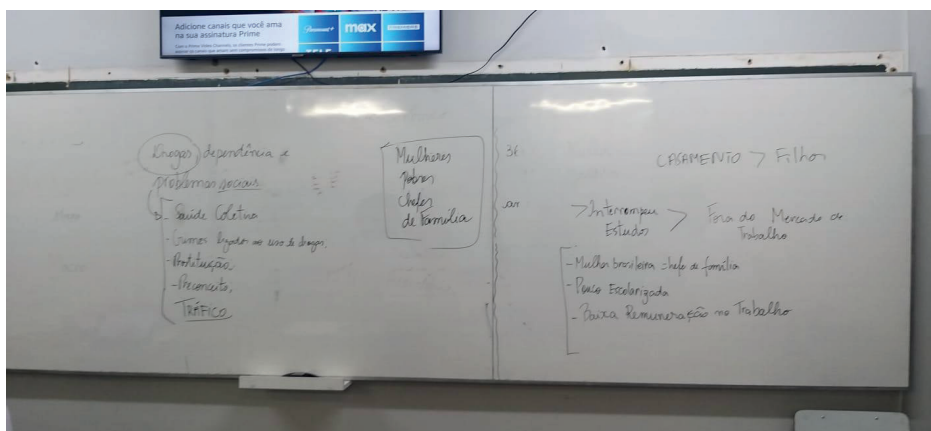 Adicione canais que você ama
na sua assinatura Prime
Paramount+
max
Drogas dependência e
problemas sociais
- Saúde Coletiva
- Crimes ligados ao uso de drogas.
- Prostituição,
- Preconceito,
TRÁFICO
Mulheres
Pobres
Chefes
de Família
CASAMENTO > Filhos
> Interrompeu
Estudos
> Fora do Mercado de
Trabalho
- Mulher brasileira chefe de família
- Pouco Escolarizada
- Baixa Remuneração no Trabalho